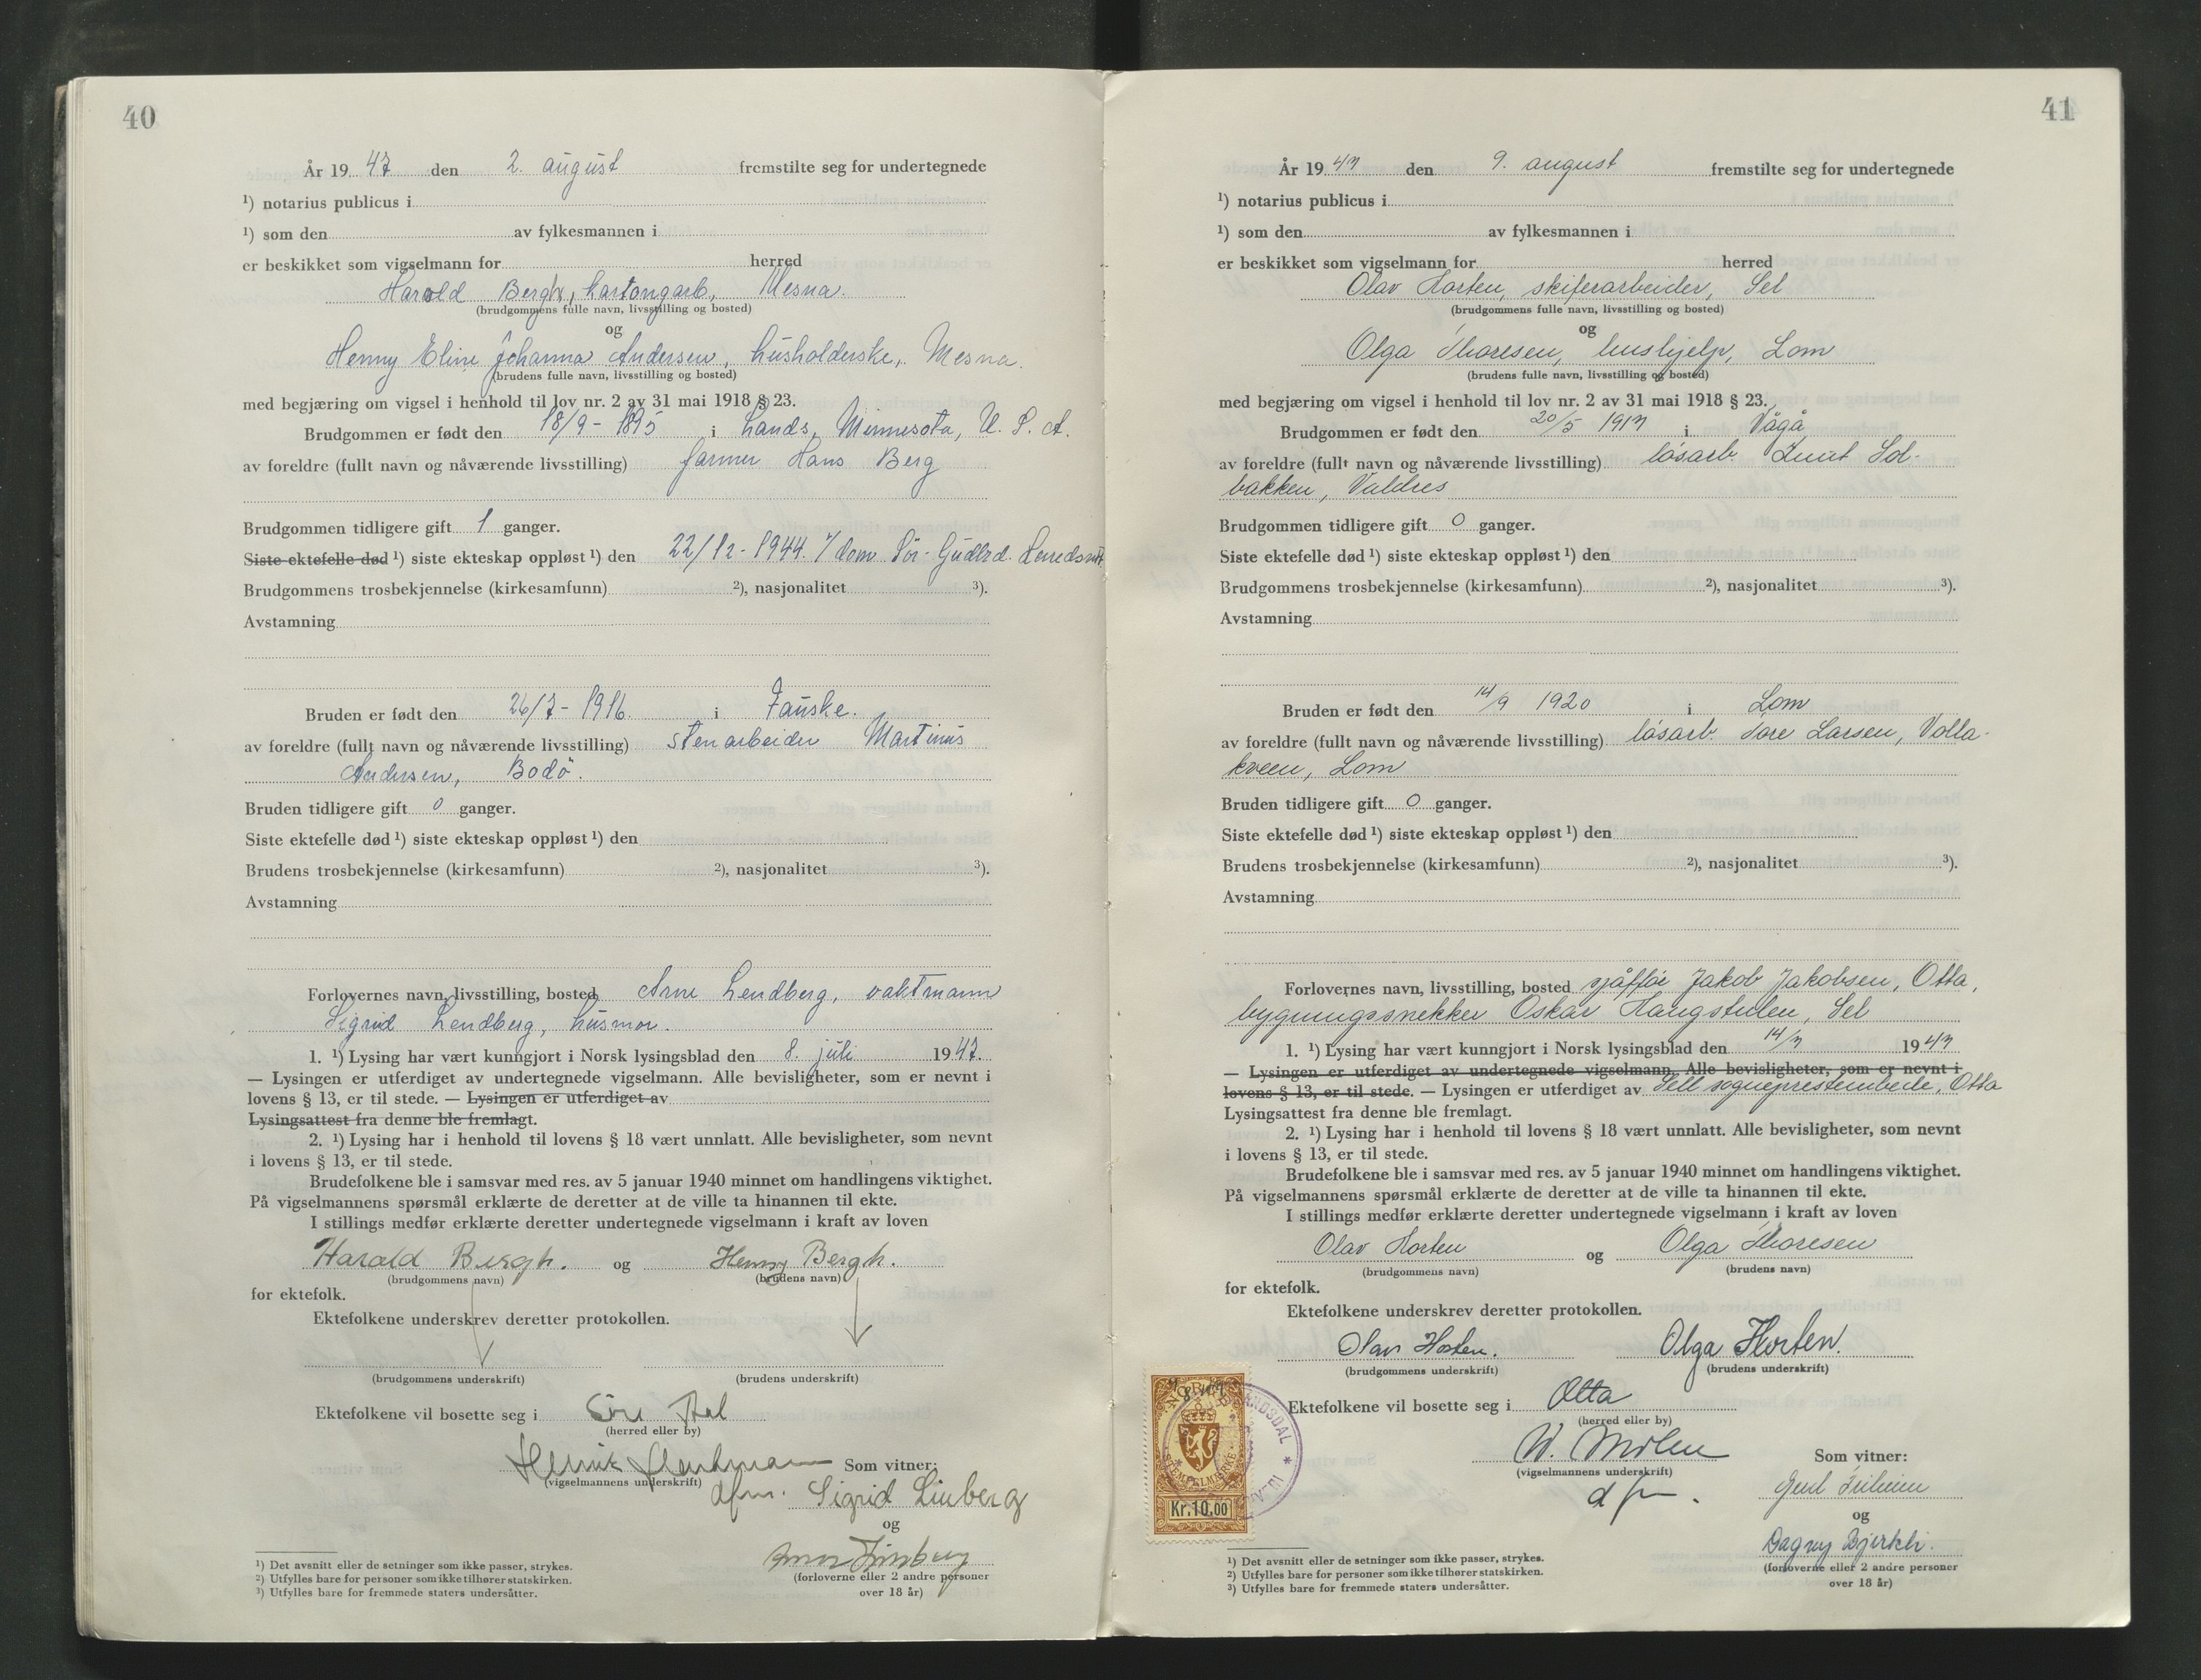 40
År 19 47 den 2. august fremstilte seg for undertegnede
¹) notarius publicus i
¹) som den av fylkesmannen i
er beskikket som vigselmann for herred
Harald Bergh, kartongarb, Mesna.
(brudgommens fulle navn, livsstilling og bosted)
og
Henny Eline Johanna Andersen, husholderske, Mesna.
(brudens fulle navn, livsstilling og bosted)
med begjæring om vigsel i henhold til lov nr. 2 av 31 mai 1918 § 23.
Brudgommen er født den 18/9 - 1895 i Lands, Minnesota, U. S. A.
av foreldre (fullt navn og nåværende livsstilling) farmer Hans Berg
Brudgommen tidligere gift 1 ganger.
Siste ektefelle død ¹) siste ekteskap oppløst ¹) den 22/12 - 1944. v/ dom Sör-Gudbrd. Herredsrett
Brudgommens trosbekjennelse (kirkesamfunn) ²), nasjonalitet ³).
Avstamning
Bruden er født den 26/7 - 1916. i Fauske.
av foreldre (fullt navn og nåværende livsstilling) stenarbeider Martinus
Andersen, Bodö.
Bruden tidligere gift 0 ganger.
Siste ektefelle død ¹) siste ekteskap oppløst ¹) den
Brudens trosbekjennelse (kirkesamfunn) ²), nasjonalitet ³).
Avstamning
Forlovernes navn, livsstilling, bosted Arne Lendberg, vaktmann
Sigrid Lendberg, husmor.
1. ¹) Lysing har vært kunngjort i Norsk lysingsblad den 8. juli 19 47.
— Lysingen er utferdiget av undertegnede vigselmann. Alle bevisligheter, som er nevnt i
lovens § 13, er til stede. — Lysingen er utferdiget av
Lysingsattest fra denne ble fremlagt.
2. ¹) Lysing har i henhold til lovens § 18 vært unnlatt. Alle bevisligheter, som nevnt
i lovens § 13, er til stede.
Brudefolkene ble i samsvar med res. av 5 januar 1940 minnet om handlingens viktighet.
På vigselmannens spørsmål erklærte de deretter at de ville ta hinannen til ekte.
I stillings medfør erklærte deretter undertegnede vigselmann i kraft av loven
Harald Bergh. og Henny Bergh.
(brudgommens navn) (brudens navn)
for ektefolk.
Ektefolkene underskrev deretter protokollen.
(brudgommens underskrift) (brudens underskrift)
Ektefolkene vil bosette seg i
(herred eller by)
Henrik Som vitner:
(vigselmannens underskrift)
dfm. Sigrid Linberg
og
(forloverne eller 2 andre personer
over 18 år)
¹) Det avsnitt eller de setninger som ikke passer, strykes.
²) Utfylles bare for personer som ikke tilhører statskirken.
³) Utfylles bare for fremmede staters undersåtter.
41
År 19 47 den 9. august fremstilte seg for undertegnede
¹) notarius publicus i
¹) som den av fylkesmannen i
er beskikket som vigselmann for herred
Olav Horten, skiferarbeider, Sel
(brudgommens fulle navn, livsstilling og bosted)
og
Olga Thoresen, hushjelp, Lom
(brudens fulle navn, livsstilling og bosted)
med begjæring om vigsel i henhold til lov nr. 2 av 31 mai 1918 § 23.
Brudgommen er født den 20/5 1917 i Vågå
av foreldre (fullt navn og nåværende livsstilling) løsarb. Knut Sol-
bakken, Valdres
Brudgommen tidligere gift 0 ganger.
Siste ektefelle død ¹) siste ekteskap oppløst ¹) den
Brudgommens trosbekjennelse (kirkesamfunn) ²), nasjonalitet ³).
Avstamning
Bruden er født den 14/9 1920 i Lom
av foreldre (fullt navn og nåværende livsstilling) løsarb. Tore Larsen, Volla-
kveen, Lom
Bruden tidligere gift 0 ganger.
Siste ektefelle død ¹) siste ekteskap oppløst ¹) den
Brudens trosbekjennelse (kirkesamfunn) ²), nasjonalitet ³).
Avstamning
Forlovernes navn, livsstilling, bosted sjåffør Jakob Jakobsen, Otta,
bygningssnekker Oskar Haugstulen, Sel
1. ¹) Lysing har vært kunngjort i Norsk lysingsblad den 14/7 19 47
— Lysingen er utferdiget av undertegnede vigselmann. Alle bevisligheter, som er nevnt i
lovens § 13, er til stede. — Lysingen er utferdiget av Sell sogneprestembede, Otta
Lysingsattest fra denne ble fremlagt.
2. ¹) Lysing har i henhold til lovens § 18 vært unnlatt. Alle bevisligheter, som nevnt
i lovens § 13, er til stede.
Brudefolkene ble i samsvar med res. av 5 januar 1940 minnet om handlingens viktighet.
På vigselmannens spørsmål erklærte de deretter at de ville ta hinannen til ekte.
I stillings medfør erklærte deretter undertegnede vigselmann i kraft av loven
Olav Horten og Olga Thoresen
(brudgommens navn) (brudens navn)
for ektefolk.
Ektefolkene underskrev deretter protokollen.
Olav Horten. Olga Horten.
(brudgommens underskrift) (brudens underskrift)
Ektefolkene vil bosette seg i Otta
(herred eller by)
W. Molen Som vitner:
(vigselmannens underskrift)
dfm.
og
Dagny Bjerkli.
(forloverne eller 2 andre personer
over 18 år)
Kr. 10.00
¹) Det avsnitt eller de setninger som ikke passer, strykes.
²) Utfylles bare for personer som ikke tilhører statskirken.
³) Utfylles bare for fremmede staters undersåtter.